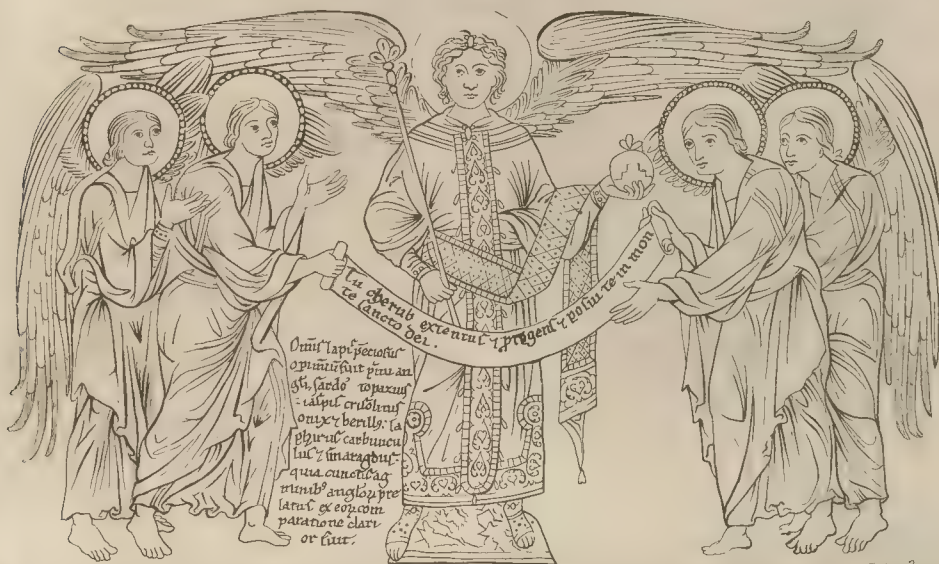 Tu cherub extentus ⁊ ꝓtegens ⁊ posui te in mon
te sancto dei.
Om̅is lapis p̅ciosus
opim̅tu̅ fuit p̅mi an
gli, sardꝰ topazius
iaspis crisolitus
onix ⁊ berillꝰ: sa
phirus carbuncu
lus ⁊ smaragdus
quia cunctis ag
minibꝰ angloꝝ pre
latus ex eoꝝ com
paratione clari
or fuit.